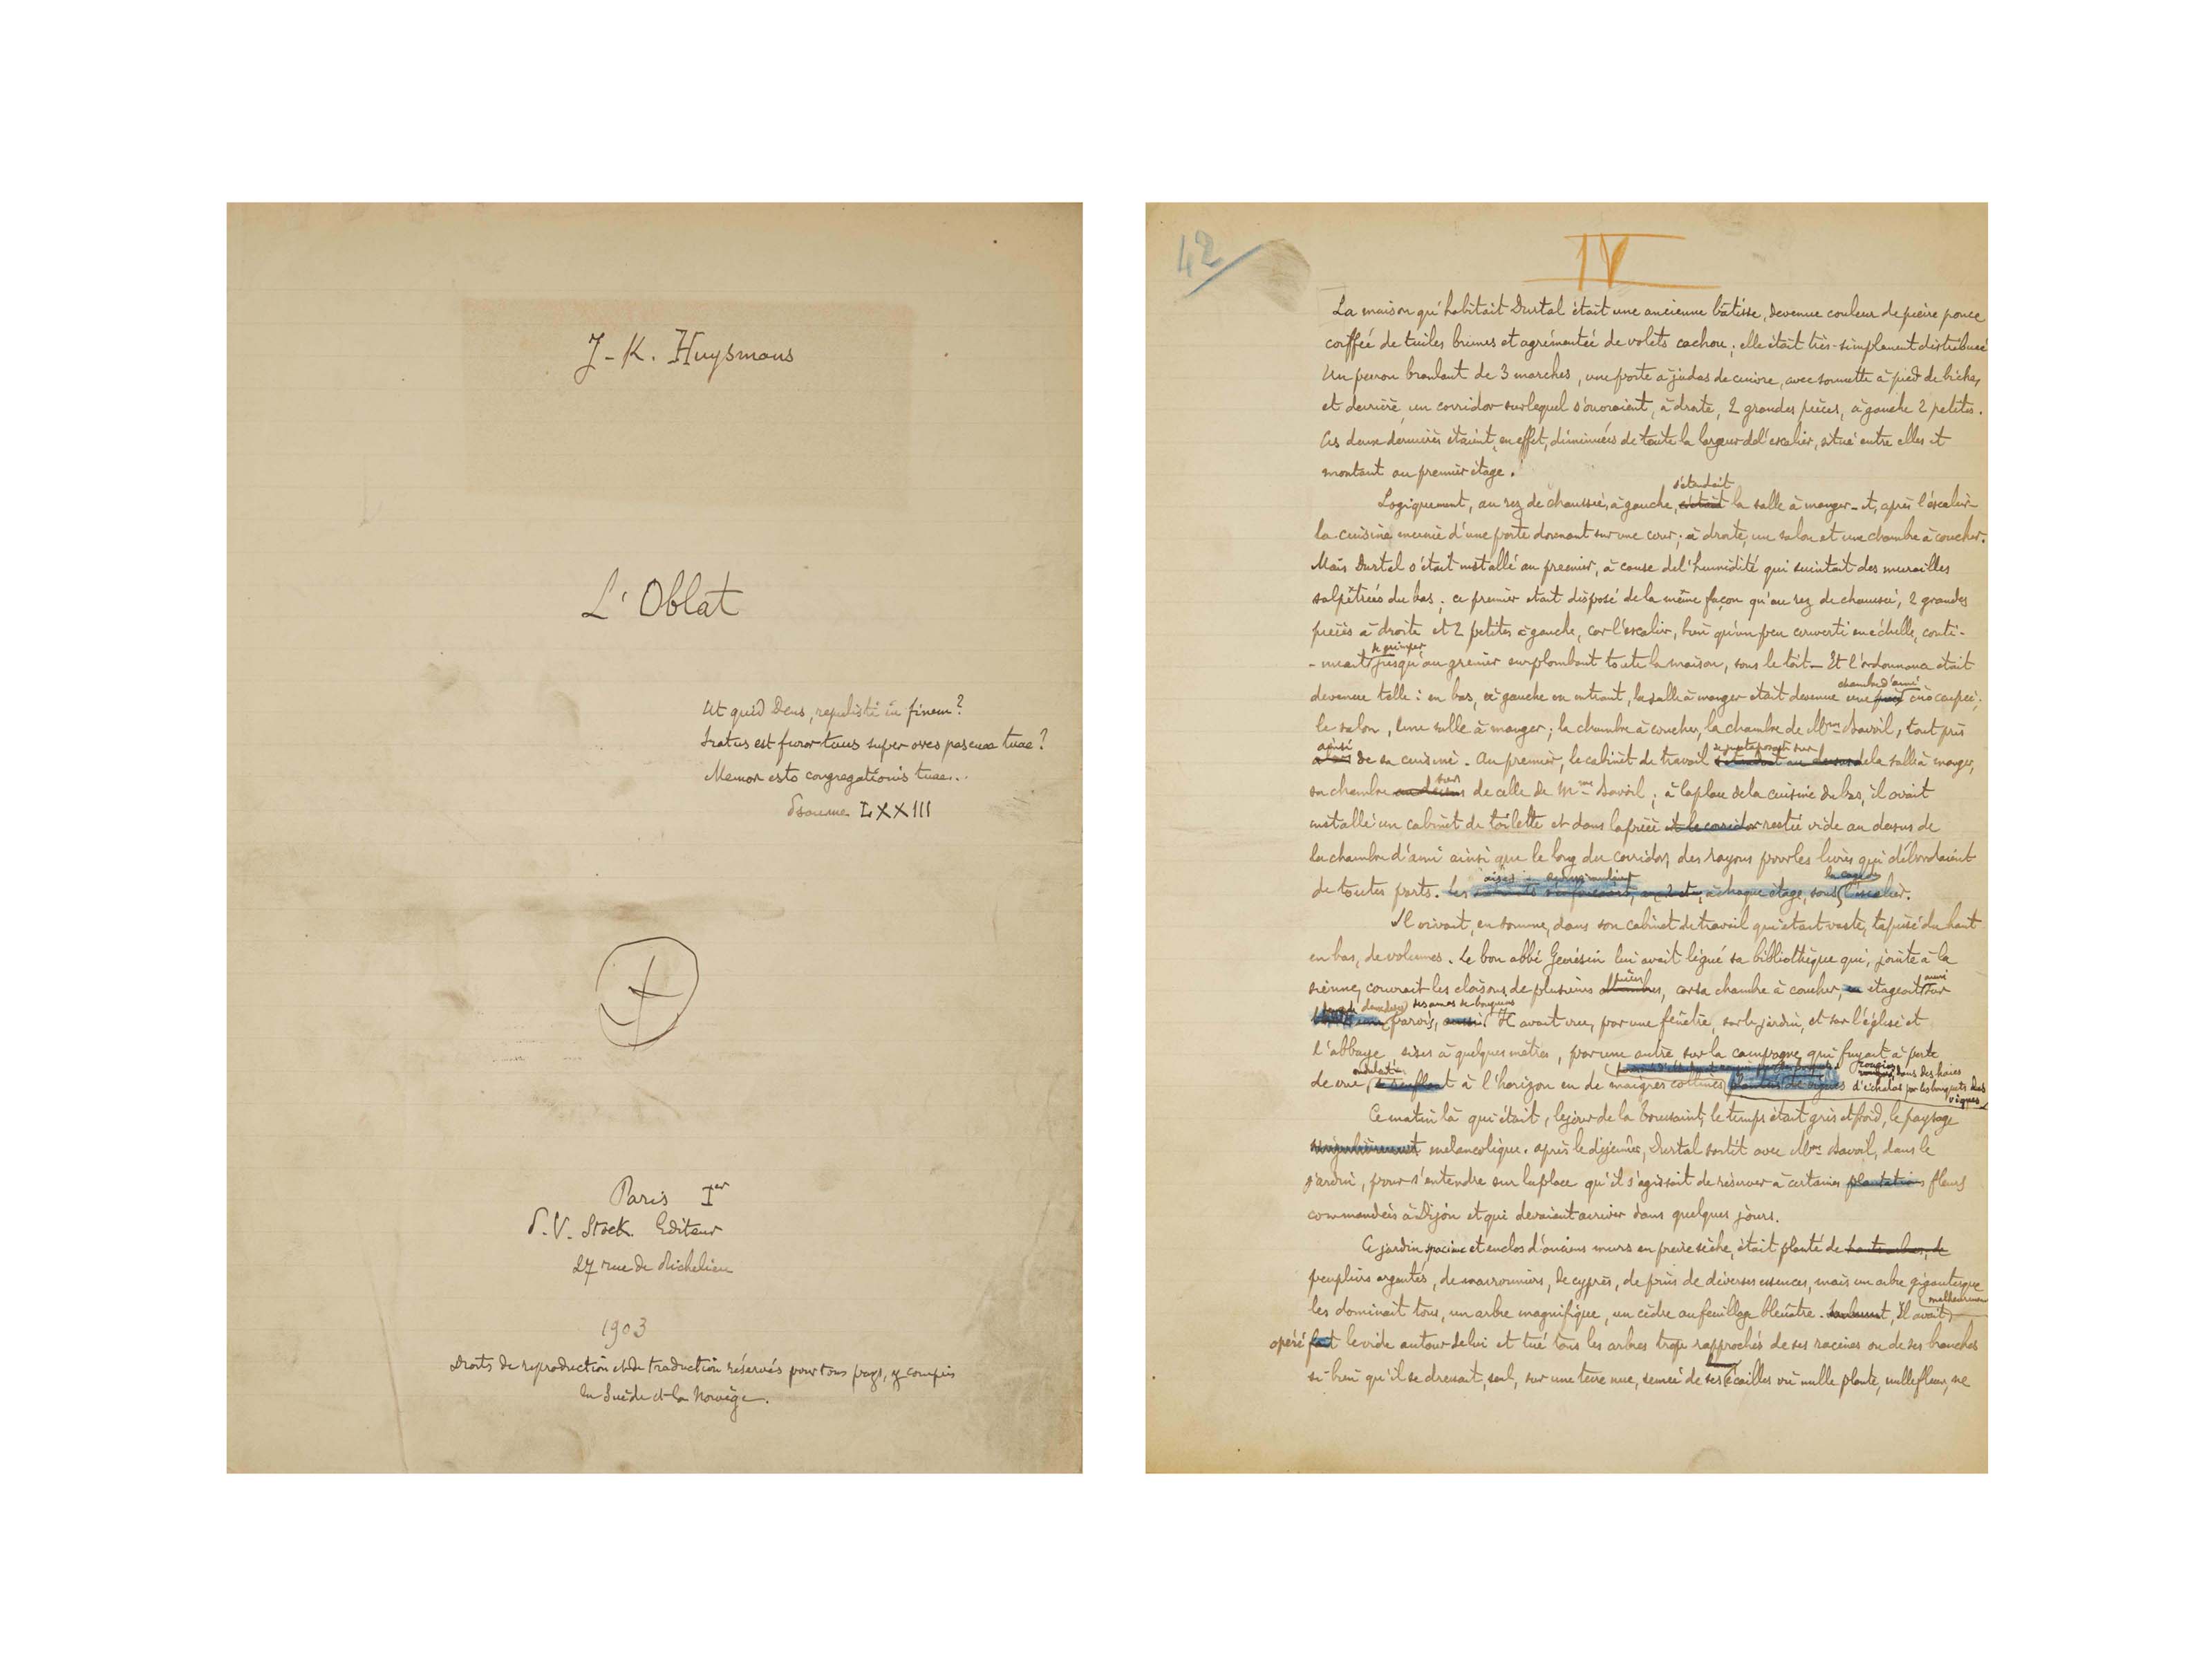 J-K. Huysmans
L'Oblat
Ut quid Deus, repulisti in finem?
Iratus est furor tuus super oves pascuae tuae?
Memor esto congregationis tuae..
Psaume LXXIII
Paris Ier
P.V. Stock. Editeur
27 rue de Richelieu
1903
Droits de reproduction et de traduction réservés pour tous pays, y compris
la Suède et la Norvège.
42
IV
La maison qu'habitait Durtal était une ancienne bâtisse, devenue couleur de pierre ponce
coiffée de tuiles brunes et agrémentée de volets cachou; elle était très-simplement distribuée
Un perron branlant de 3 marches, une porte à judas de cuivre, avec sonnette à pied de biche,
et derrière un corridor sur lequel s'ouvraient, à droite, 2 grandes pièces, à gauche 2 petites.
Ces deux dernières étaient, en effet, diminuées de toute la largeur de l'escalier, situé entre elles et
montant au premier étage.
s'étendait
Logiquement, au rez de chaussée, à gauche, c'était la salle à manger - et, après l'escalier
la cuisine munie d'une porte donnant sur une cour; à droite, un salon et une chambre à coucher.
Mais Durtal s'était installé au premier, à cause de l'humidité qui suintait des murailles
salpêtrées du bas; ce premier était disposé de la même façon qu'au rez de chaussée, 2 grandes
pièces à droite et 2 petites à gauche, car l'escalier, bien qu'un peu converti en échelle, conti-
se grimper
- nuait jusqu'au grenier surplombant toute la maison, sous le toit - Et l'ordonnance était
chambre d'ami
devenue telle: en bas, à gauche en entrant, la salle à manger était devenue une inoccupée;
le salon, une salle à manger; la chambre à coucher, la chambre de Mme Bavoil, tout près
ainsi se juxtaposait sur
de sa cuisine. Au premier, le cabinet de travail s'étendait au dessus de la salle à manger,
sur
sa chambre au dessus de celle de Mme Bavoil; à la place de la cuisine du bas, il avait
installé un cabinet de toilette et dans la pièce et le corridor restée vide au dessus de
la chambre d'ami ainsi que le long du corridor, des rayons pour les livres qui débordaient
la cage de
de toutes parts. Les à chaque étage, sous l'escalier.
Il vivait, en somme, dans son cabinet de travail qui était vaste, tapissé du haut
en bas, de volumes. Le bon abbé Gévresin lui avait légué sa bibliothèque qui, jointe à la
pièces aussi
sienne, couvrait les cloisons de plusieurs chambres, car sa chambre à coucher, étageait sur
ses amas de bouquins
parois, aussi. Il avait vue, par une fenêtre, sur le jardin, et sur l'église et
l'abbaye, sises à quelques mètres, par une autre, sur la campagne qui fuyait à perte
ondulait dans des haies
de vue, se renflant à l'horizon en de maigres collines plantées de vignes d'échalas par les bouquets des
vignes
Ce matin là qui était, le jour de la Toussaint, le temps était gris et froid, le paysage
singulièrement mélancolique. Après le déjeuner, Durtal sortit avec Mme Bavoil, dans le
jardin, pour s'entendre sur la place qu'il s'agissait de réserver à certaines plantations fleurs
commandées à Dijon et qui devaient arriver dans quelques jours.
Ce jardin spacieux et enclos d'anciens murs en pierre sèche, était planté de hauts arbres, de
peupliers argentés, de marronniers, de cyprès, de pins de diverses essences, mais un arbre gigantesque
malheureusement
les dominait tous, un arbre magnifique, un cèdre au feuillage bleuâtre. Seulement, Il avait
opéré fait le vide autour de lui et tué tous les arbres trop rapprochés de ses racines ou de ses branches
si bien qu'il se dressait, seul, sur une terre nue, semée de ses écailles où nulle plante, nulle fleur, ne